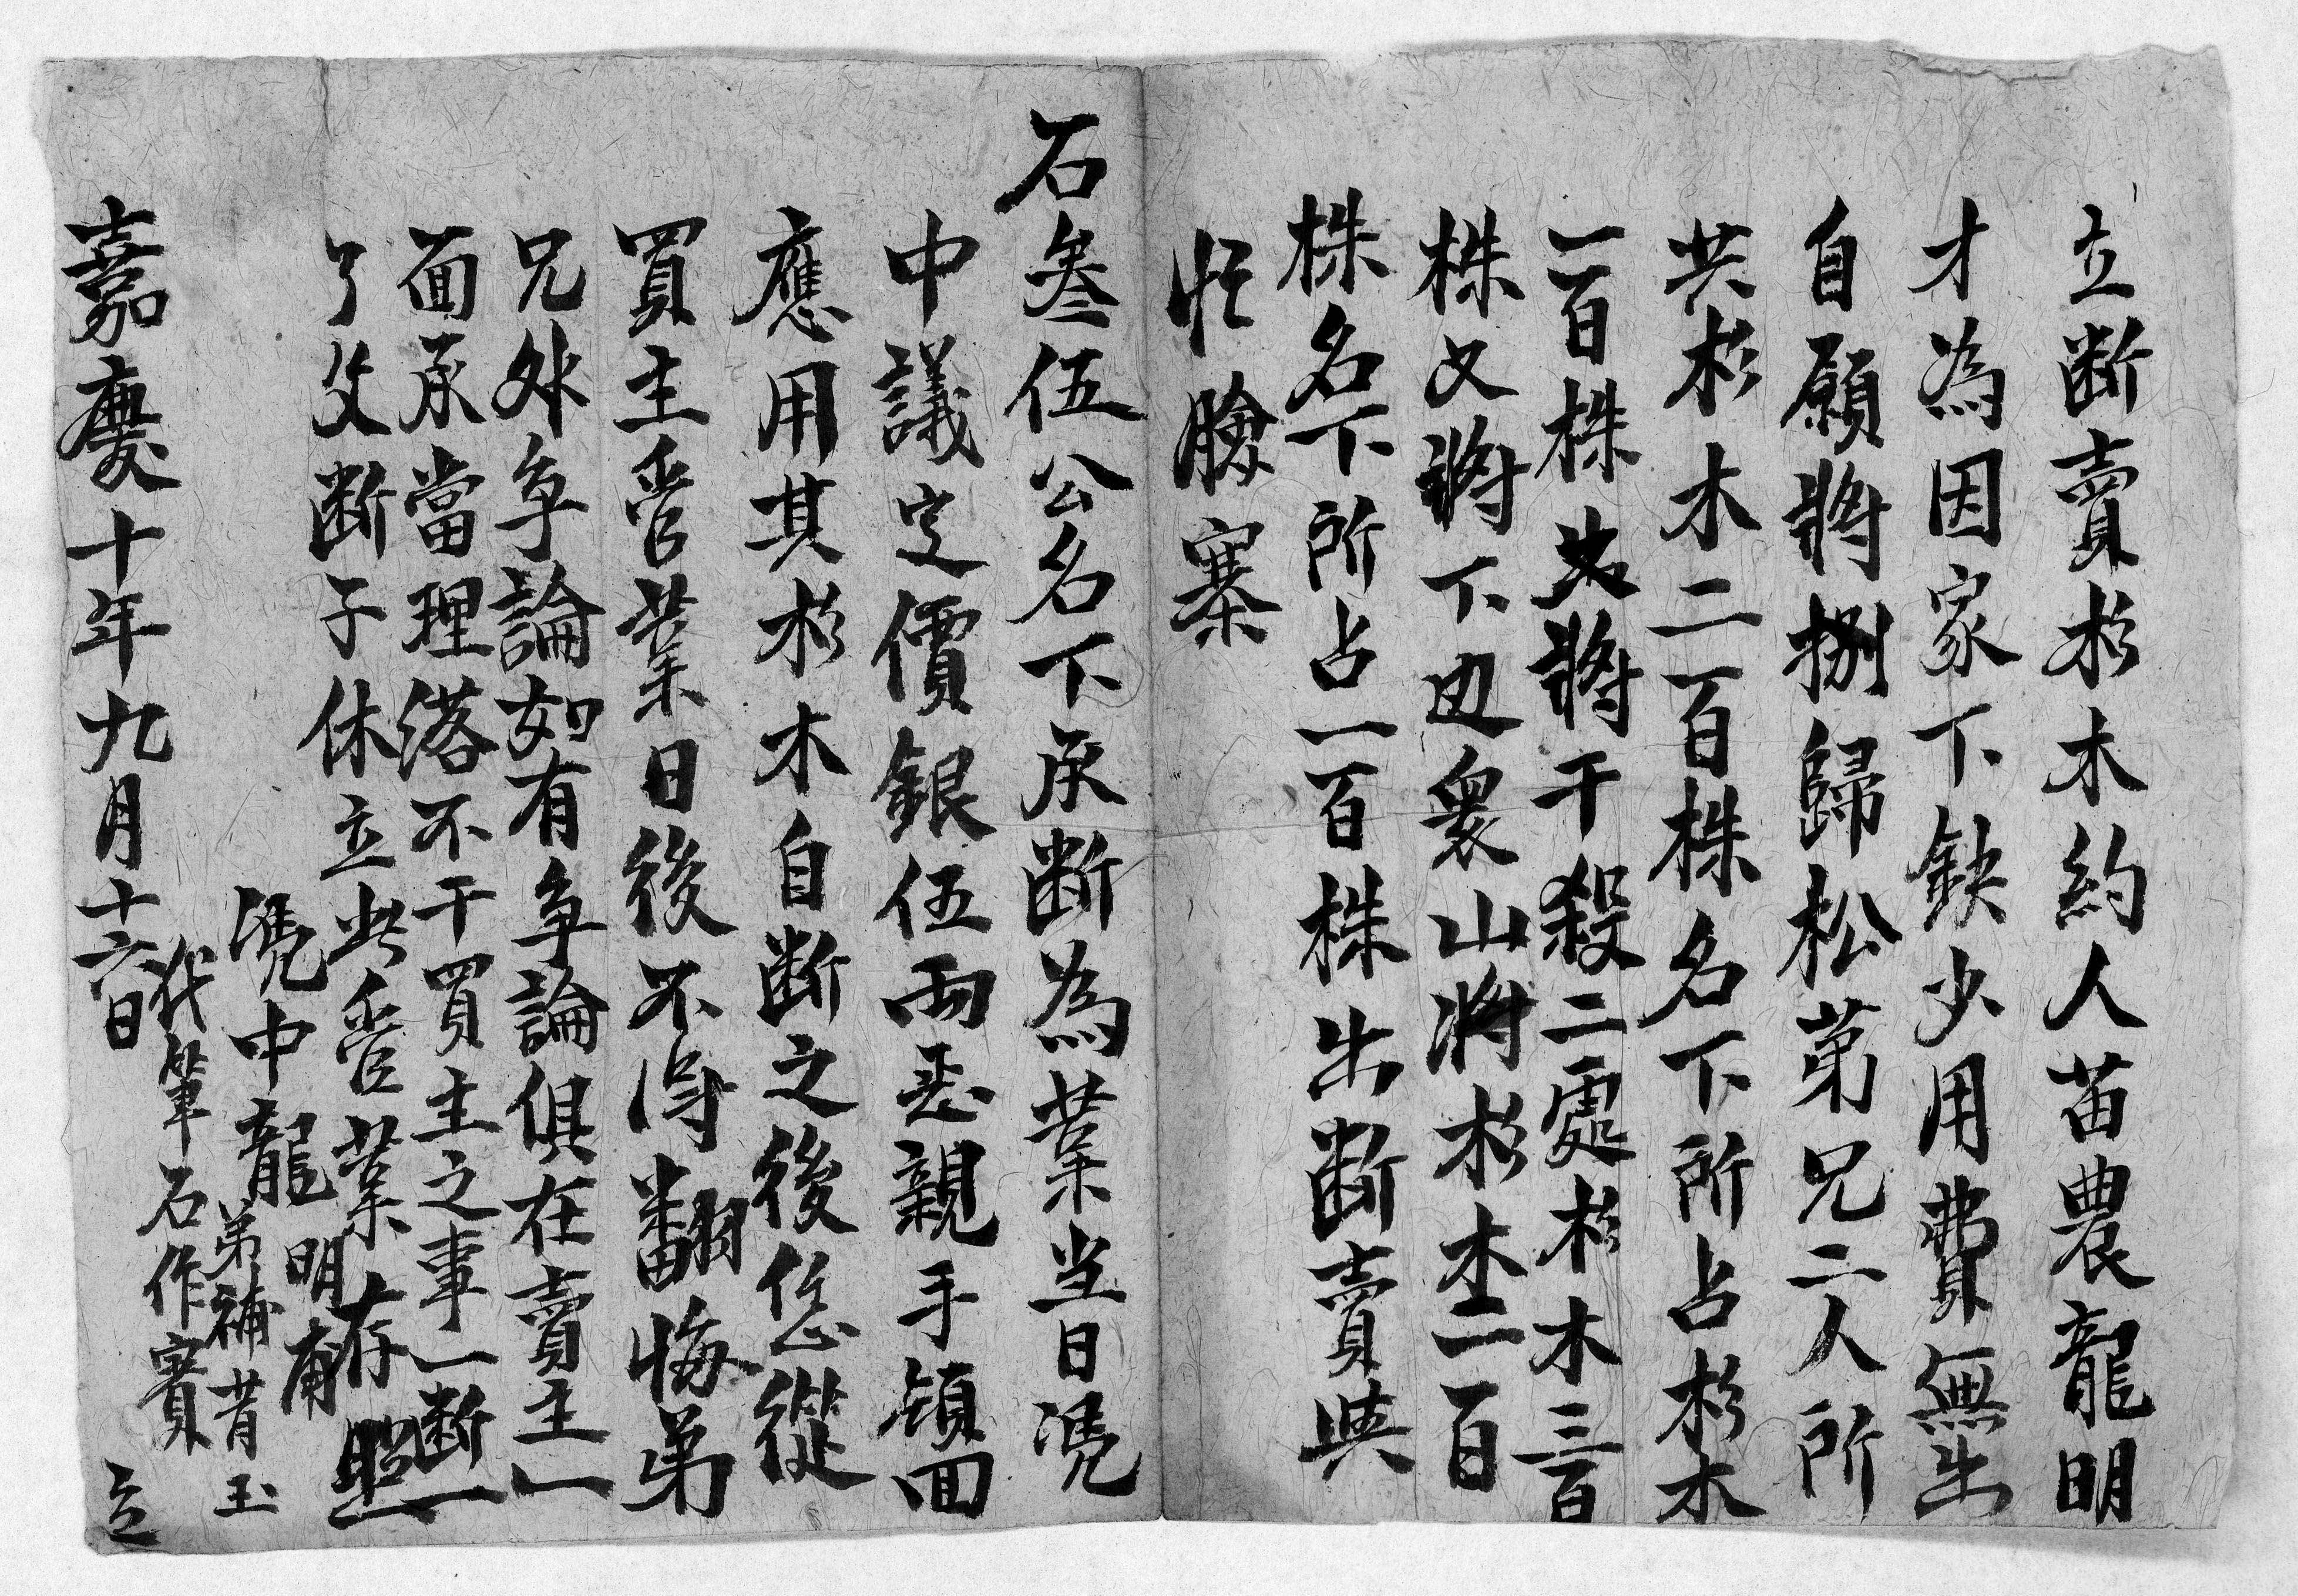 立断賣杉木約人苗農龍明
才為因家下缺少用費無出
自願將捌歸松苐兄二人所
共杉木二百株名下所占杉木
一百株出將干殺二處杉木三百
株又將下边衆山將杉木二百
株名下所占一百株出断賣與
臉寨
石叁伍公名下承断為業当日凴
中議定價銀伍両悉親手領回
應用其杉木自断之後恁從
買主管業日後不得翻悔弟
兄外争論如有争論俱在賣主一
面承當理落不干買主之事一断一
了父断子休立此管業存照
凴中龍明甫
弟補昔玉
代筆石作賓
嘉慶十年九月十六日 立